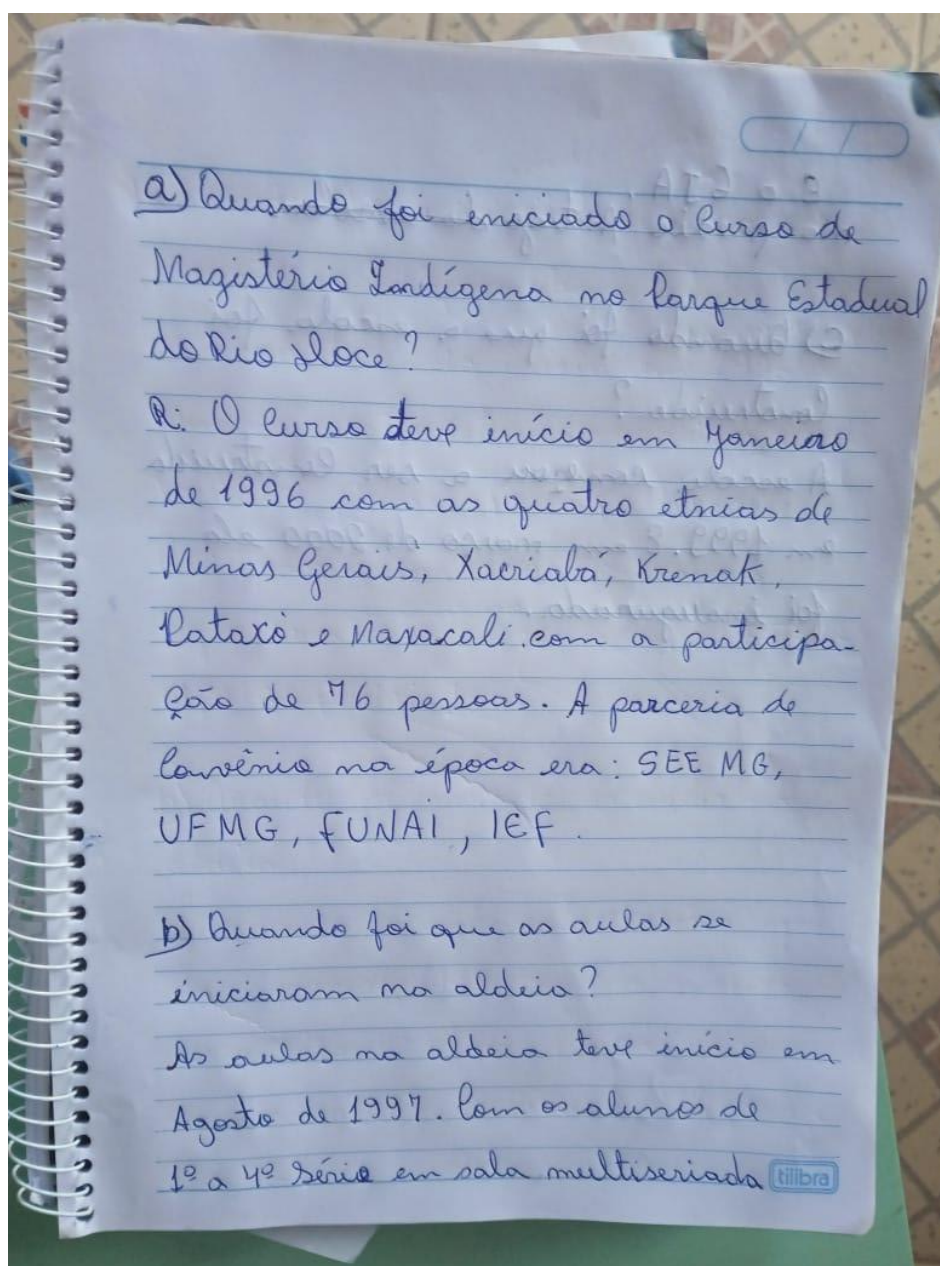 a) Quando foi iniciado o Curso de
Magistério Indígena no Parque Estadual
do Rio Doce?
R: O Curso teve início em Janeiro
de 1996 com as quatro etnias de
Minas Gerais, Xacriabá, Krenak,
Pataxó e Maxacali. com a participa-
ção de 76 pessoas. A parceria de
Convênio na época era: SEE MG,
UFMG, FUNAI, IEF.
b) Quando foi que as aulas se
iniciaram na aldeia?
As aulas na aldeia teve início em
Agosto de 1997. Com os alunos de
1º a 4º Série em sala multiseriada
tilibra